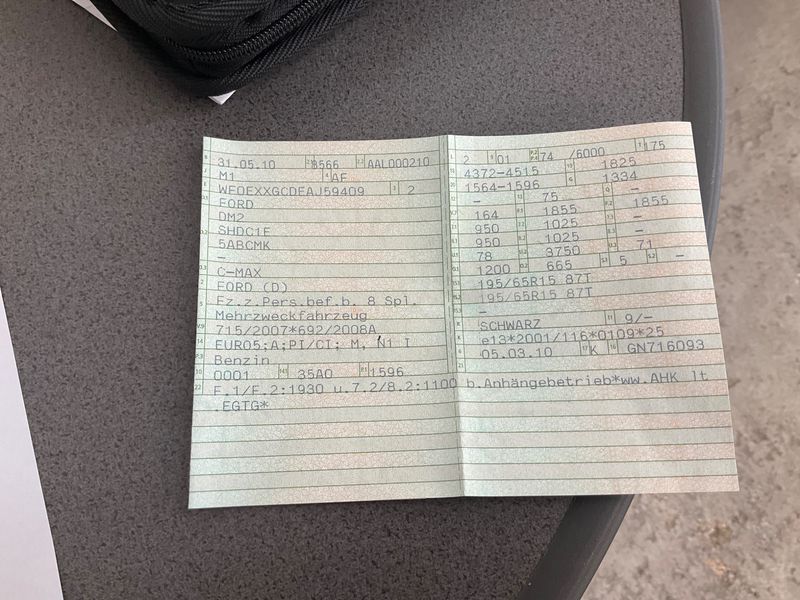 31.05.10 8566 AAL000210
M1 AF
WF0EXXGCDEAJ59409 2
FORD
DM2
SHDC1F
5ABCMK
–
C-MAX
FORD (D)
Fz.z.Pers.bef.b. 8 Spl.
Mehrzweckfahrzeug
715/2007*692/2008A
EURO5;A;PI/CI; M, N1 I
Benzin
0001 35A0 1596
2 01 74 /6000 175
4372-4515 1825
1564-1596 1334
– 75 –
164 1855 1855
950 1025 –
950 1025 –
78 3750 71
1200 665 5 –
195/65R15 87T
195/65R15 87T
–
SCHWARZ 9/–
e13*2001/116*0109*25
05.03.10 K GN716093
F.1/F.2:1930 u.7.2/8.2:1100 b.Anhängebetrieb*ww.AHK lt
.EGTG*